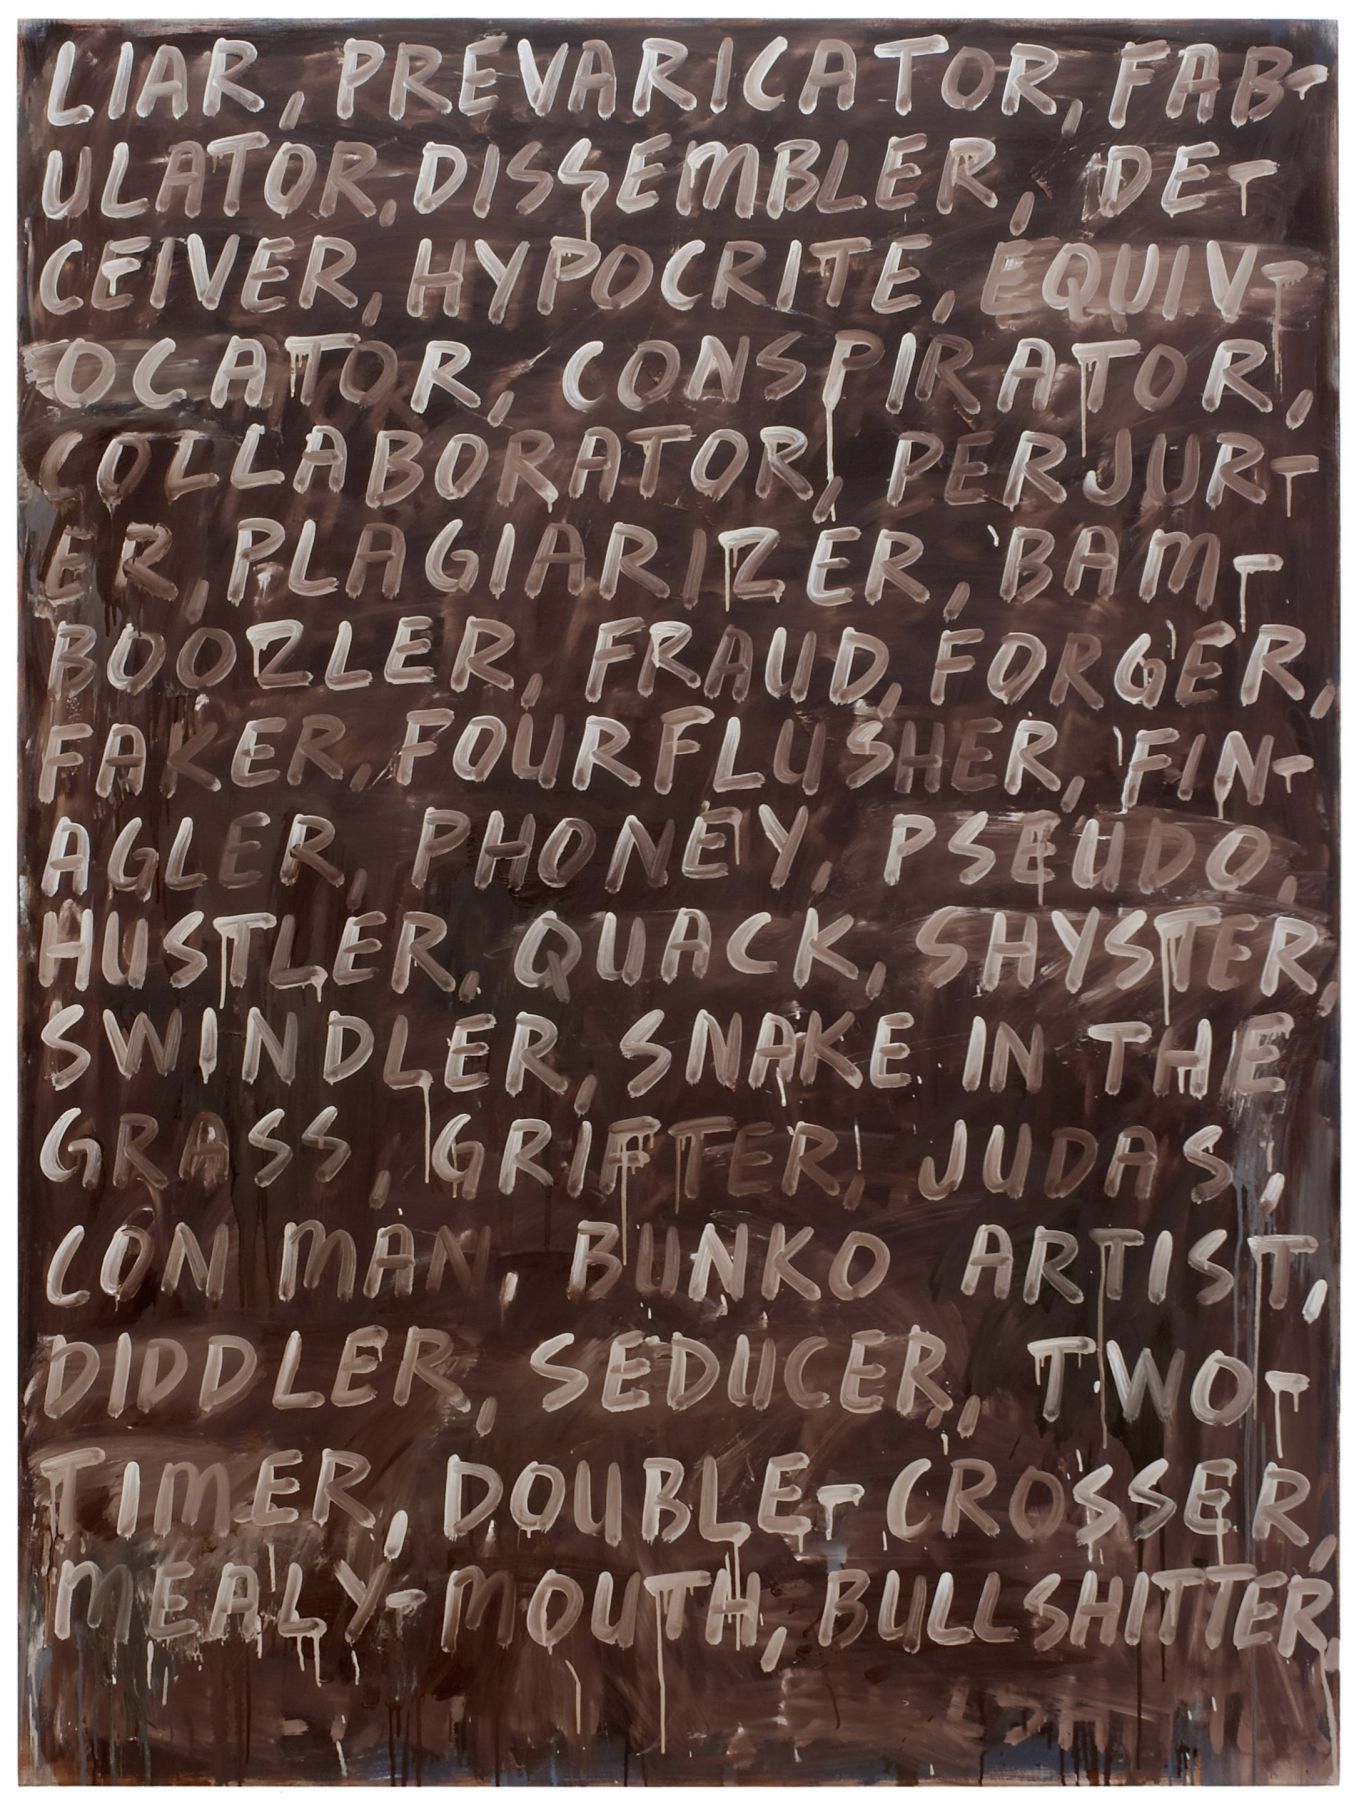 LIAR, PREVARICATOR, FAB-
ULATOR, DISSEMBLER, DE-
CEIVER, HYPOCRITE, EQUIV-
OCATOR, CONSPIRATOR,
COLLABORATOR, PERJUR-
ER, PLAGIARIZER, BAM-
BOOZLER, FRAUD, FORGER,
FAKER, FOURFLUSHER, FIN-
AGLER, PHONEY, PSEUDO,
HUSTLER, QUACK, SHYSTER,
SWINDLER, SNAKE IN THE
GRASS, GRIFTER, JUDAS,
CON MAN, BUNKO ARTIST,
DIDDLER, SEDUCER, TWO-
TIMER, DOUBLE-CROSSER,
MEALY-MOUTH, BULLSHITTER,